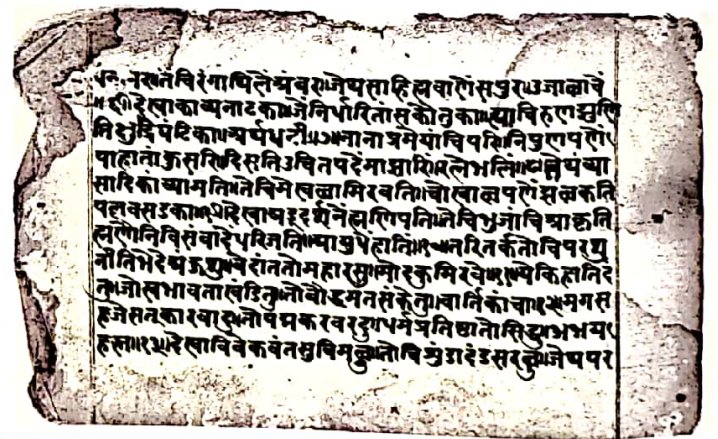 तेंचि रंगाथिलें अंबर॥जेथ साहित्य वाणें सपुर॥उजाळाचें
॥६॥देखा काव्यनाटका॥जे निर्धारितां सकौतुका॥त्याचि रुणझुणि
ति क्षुद्रघंटिका॥अर्थध्वनी॥७॥नाना प्रमेयांचि परि॥निपुणपणें
पाहातां कुसरि॥दिसति उचित पदें माझारि॥रत्ने भलिं॥८॥तेथ व्या
सादिकांच्या मति॥तेचि मेखळा मिरवति॥चोखाळपणें झळकति
पलवसडका॥९॥देखा षड्दर्शनें ह्मणिपति॥तेचि भुजांचि आकृति
ह्मणौनि विसंवादें धरिजति॥आयुधें हातिं॥१०॥तरि तर्क तोचि परशु
नीतिभेद अंकुशु॥वेदांत तो महारसु॥मोदकु मिरवे॥११॥एके हाति दं
तु॥जो स्वभावता खंडितु॥तो बौद्धमतसंकेतु॥वार्तिकांचा॥१२॥मग स
हजे सतकारवादु॥तो पद्मकर वरदु॥धर्मप्रतिष्ठा तो सिद्धु॥अभय
हस्त॥१३॥देखा विवेकवंत सुविमळु॥तोचि शुंडादंड सरळु॥जेथ पर